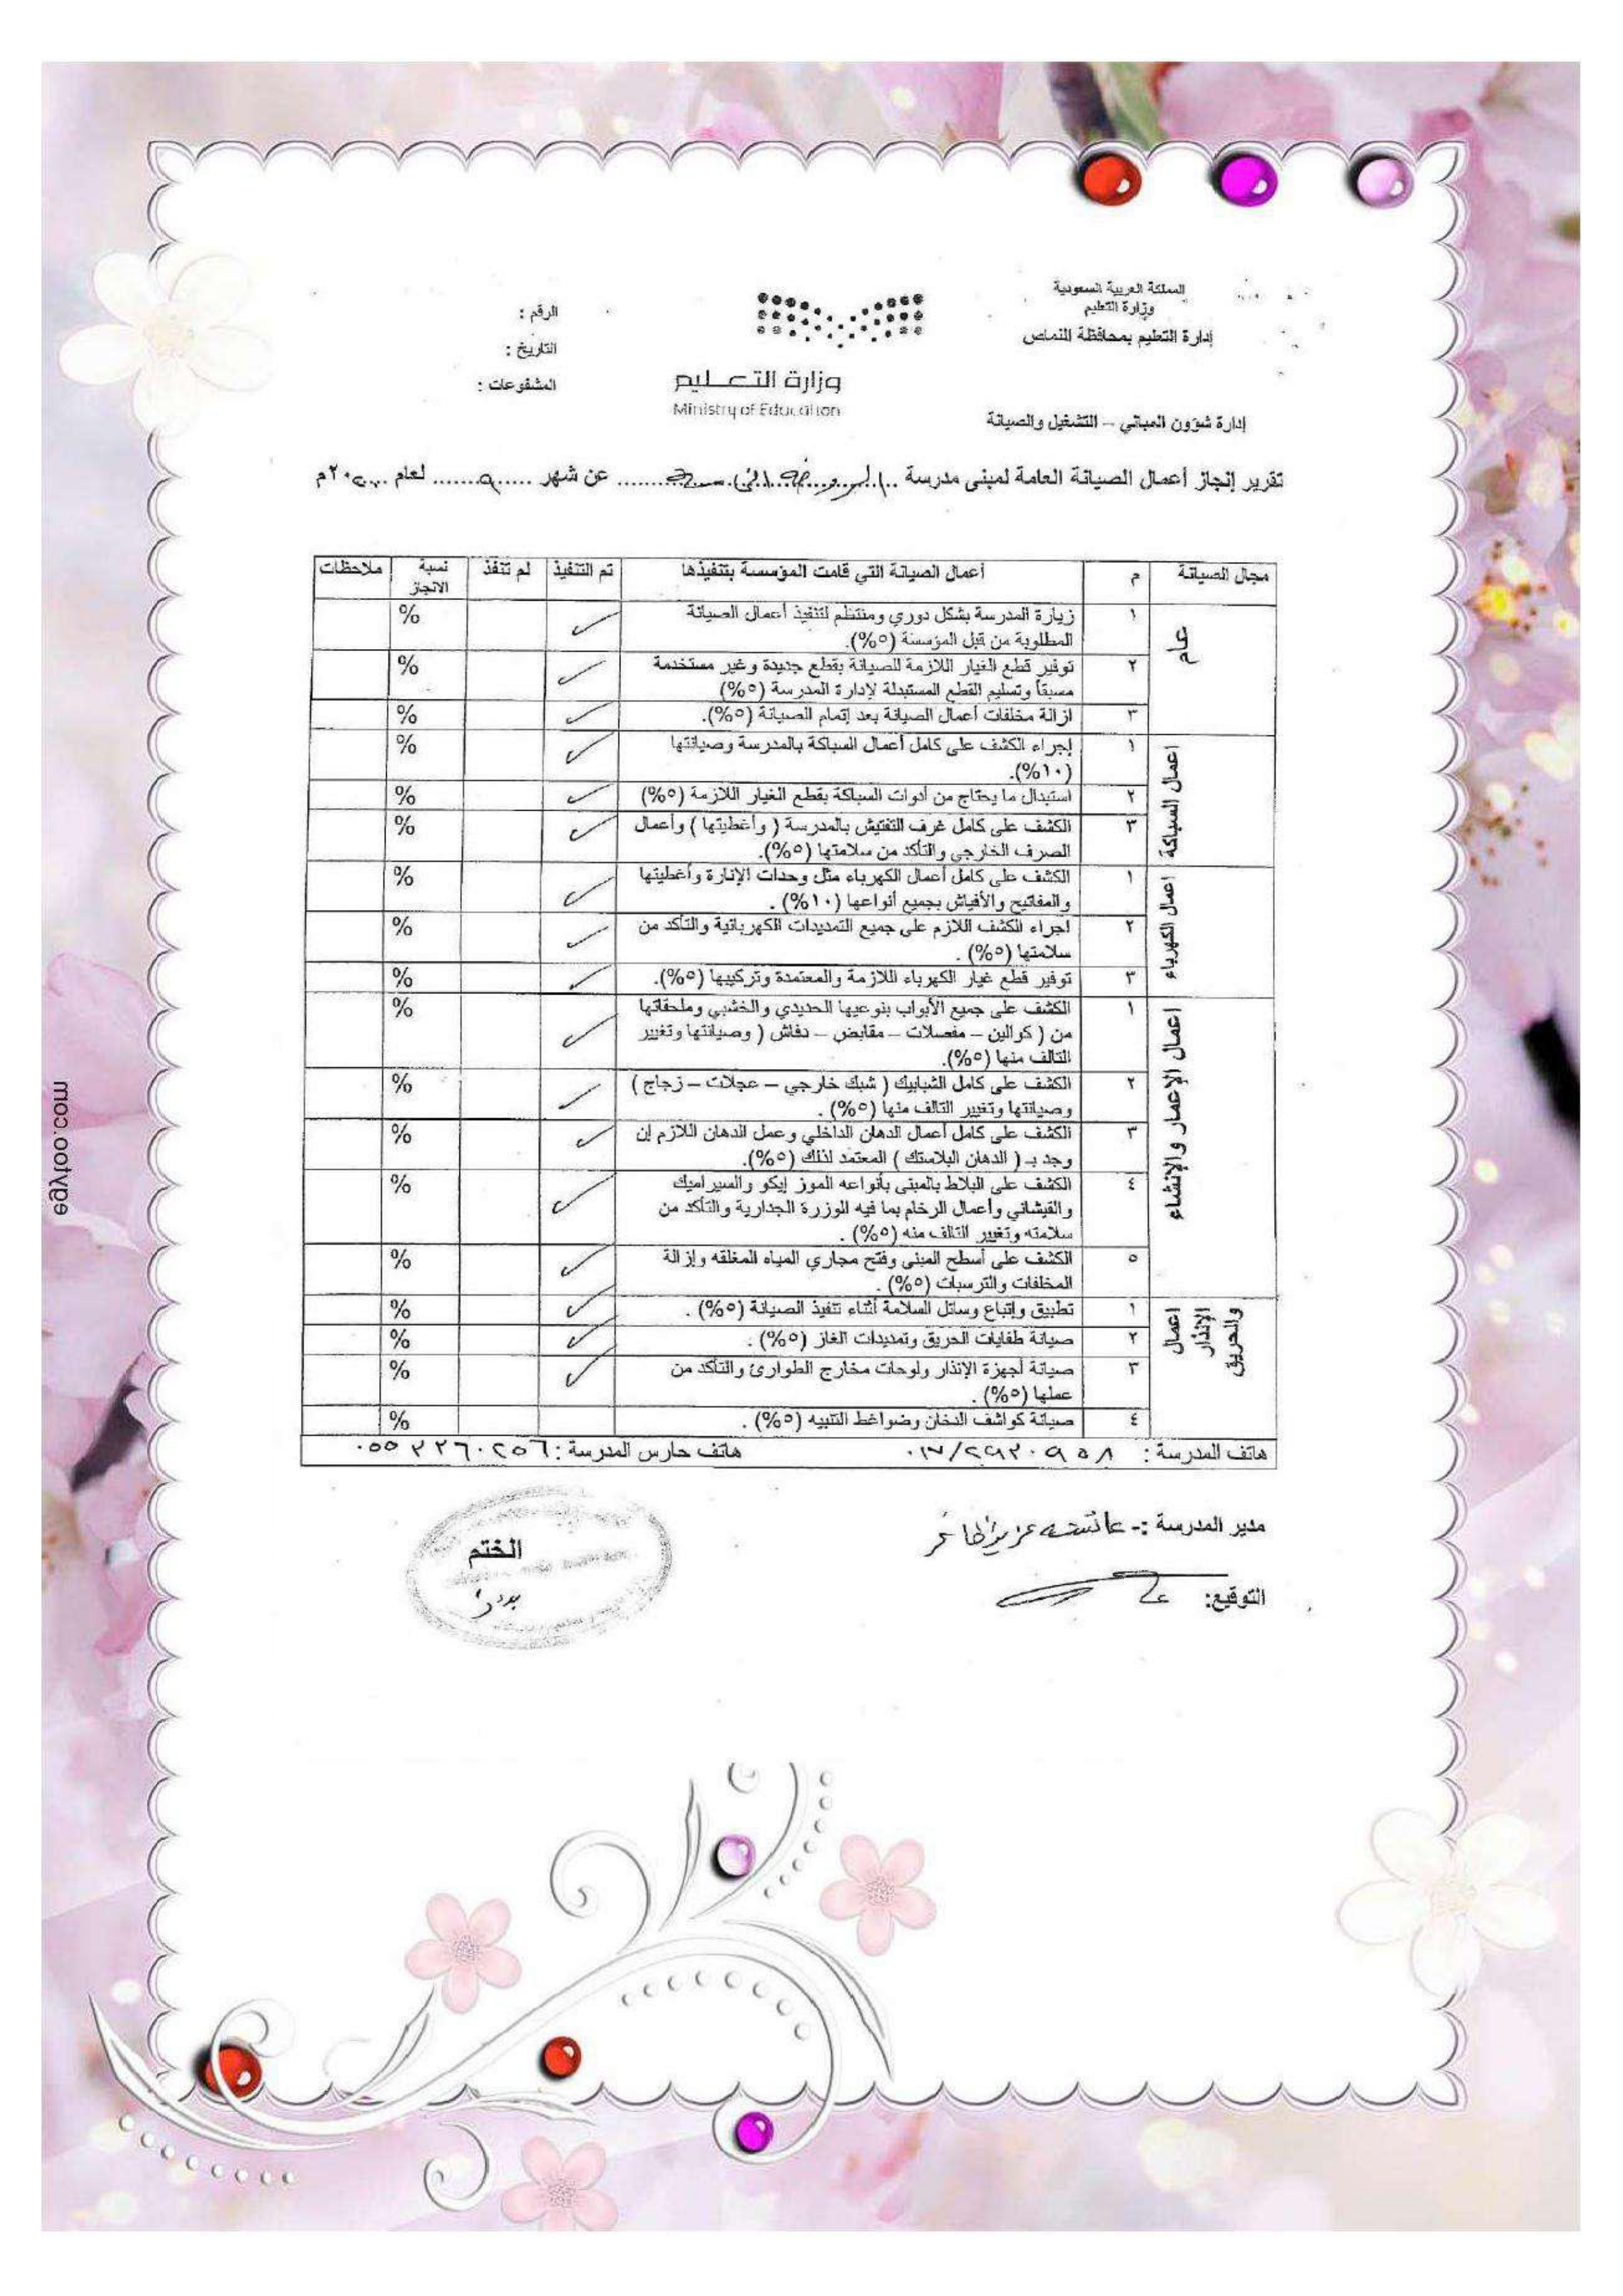 المملكة العربية السعودية
وزارة التعليم
إدارة التعليم بمحافظة النماص
إدارة شؤون المباني – التشغيل والصيانة
وزارة التعـليم
Ministry of Education
الرقم :
التاريخ :
المشفوعات :
تقرير إنجاز أعمال الصيانة العامة لمبنى مدرسة الروضة عن شهر ٩ لعام ٢٠٢٠م
مجال الصيانة م أعمال الصيانة التي قامت المؤسسة بتنفيذها تم التنفيذ لم تنفذ نسبة الانجاز ملاحظات
عام
١ زيارة المدرسة بشكل دوري ومنتظم لتنفيذ أعمال الصيانة %
المطلوبة من قبل المؤسسة (٥%).
٢ توفير قطع الغيار اللازمة للصيانة بقطع جديدة وغير مستخدمة %
مسبقاً وتسليم القطع المستبدلة لإدارة المدرسة (٥%)
٣ ازالة مخلفات أعمال الصيانة بعد إتمام الصيانة (٥%). %
اعمال السباكة
١ إجراء الكشف على كامل أعمال السباكة بالمدرسة وصيانتها %
(١٠%).
٢ استبدال ما يحتاج من أدوات السباكة بقطع الغيار اللازمة (٥%) %
٣ الكشف على كامل غرف التفتيش بالمدرسة ( وأغطيتها ) وأعمال %
الصرف الخارجي والتأكد من سلامتها (٥%).
اعمال الكهرباء
١ الكشف على كامل أعمال الكهرباء مثل وحدات الإنارة وأغطيتها %
والمفاتيح والأفياش بجميع أنواعها (١٠%) .
٢ اجراء الكشف اللازم على جميع التمديدات الكهربائية والتأكد من %
سلامتها (٥%) .
٣ توفير قطع غيار الكهرباء اللازمة والمعتمدة وتركيبها (٥%). %
اعمال الإعمار والإنشاء
١ الكشف على جميع الأبواب بنوعيها الحديدي والخشبي وملحقاتها %
من ( كوالين – مفصلات – مقابض – دفاش ( وصيانتها وتغيير
التالف منها (٥%).
٢ الكشف على كامل الشبابيك ( شبك خارجي – عجلات – زجاج ) %
وصيانتها وتغيير التالف منها (٥%) .
٣ الكشف على كامل أعمال الدهان الداخلي وعمل الدهان اللازم إن %
وجد بـ ( الدهان البلاستك ) المعتمد لذلك (٥%).
٤ الكشف على البلاط بالمبنى بأنواعه الموز إيكو والسيراميك %
والقيشاني وأعمال الرخام بما فيه الوزرة الجدارية والتأكد من
سلامته وتغيير التالف منه (٥%) .
٥ الكشف على أسطح المبنى وفتح مجاري المياه المغلقه وإزالة %
المخلفات والترسبات (٥%) .
اعمال الإنذار والحريق
١ تطبيق وإتباع وسائل السلامة أثناء تنفيذ الصيانة (٥%) . %
٢ صيانة طفايات الحريق وتمديدات الغاز (٥%) . %
٣ صيانة أجهزة الإنذار ولوحات مخارج الطوارئ والتأكد من %
عملها (٥%) .
٤ صيانة كواشف الدخان وضواغط التنبيه (٥%) . %
هاتف المدرسة : ٠١٧/٢٩٢٠٩٥٨ هاتف حارس المدرسة :
مدير المدرسة :- عائشه عزيز
التوقيع:
الختم
egytoo.com